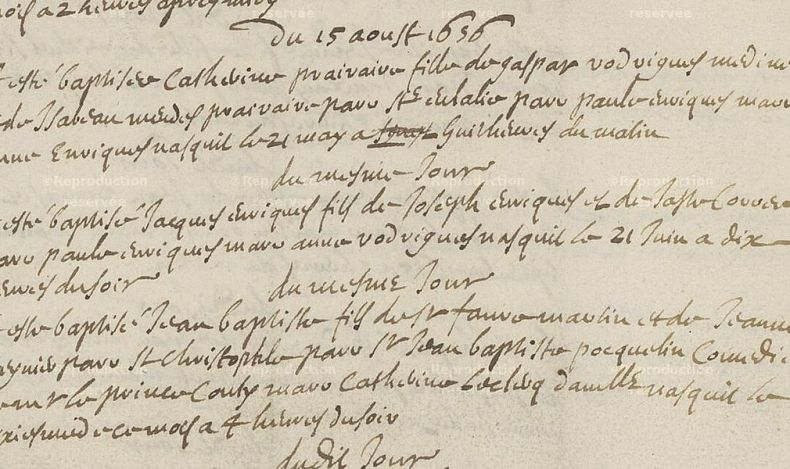 mois a 2 heures apres midy
du 15 aoust 1656
este baptisée Catherine prairaire fille de gaspar rodrigues medine
de Isabeau mendes prairaire paro Ste eulalie parr paule enriques marr
Enriques nasquit le 21 may a huit heures du matin
du mesme Jour
esté baptisé Jacques enriques fils de Joseph enriques et de
parr paule enriques marr anne rodrigues nasquit le 21 Juin a dix
heures du soir
du mesme Jour
este baptisé Jean baptiste fils de sr faure martin et de Jeanne
paro St Christophle parr sr Jean baptiste pocquelin Comedi
le prince Conty marr Catherine Leclerq damlle nasquit le
de ce mois a 4 heures du soir
dudit Jour
©Reproduction réservée